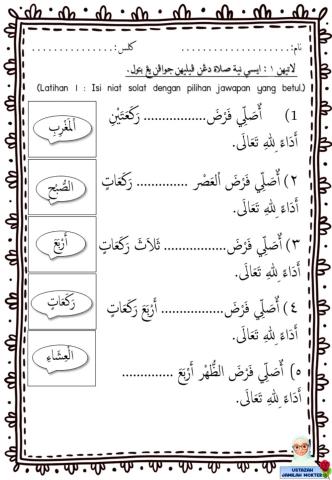 نام:...................... كلس:................
لاتيهن ١ : ايسي نية صلاة دڠن ڤيليهن جواڤن يڠ بتول.
(Latihan 1 : Isi niat solat dengan pilihan jawapan yang betul.)
1) أُصَلِّي فَرْضَ................ رَكْعَتَيْنِ
أَدَاءً لِلهِ تَعَالَى.
٢) أُصَلِّي فَرْضَ العَصْرِ ............. رَكَعَاتٍ
أَدَاءً لِلهِ تَعَالَى.
٣) أُصَلِّي فَرْضَ................ ثَلَاثَ رَكَعَاتٍ
أَدَاءً لِلهِ تَعَالَى.
٤) أُصَلِّي فَرْضَ................ أَرْبَعَ رَكَعَاتٍ
أَدَاءً لِلهِ تَعَالَى.
٥) أُصَلِّي فَرْضَ الظُّهْرِ أَرْبَعَ .............
أَدَاءً لِلهِ تَعَالَى.
اَلْمَغْرِبِ
الصُّبْحِ
أَرْبَعَ
رَكَعَاتٍ
الْعِشَاءِ
USTAZAH
JAMILAH MOKTER